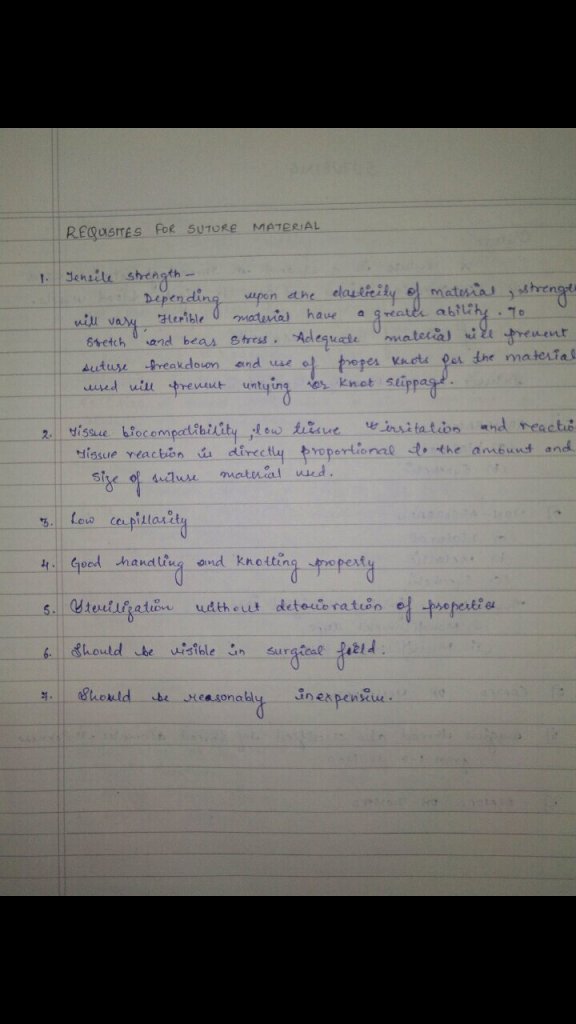 REQUISITES FOR SUTURE MATERIAL
1. Tensile strength -
Depending upon the elasticity of material, strength
will vary. Flexible material have a greater ability. To
stretch and bear stress. Adequate material will prevent
suture breakdown and use of proper knots for the material
used will prevent untying or knot slippage.
2. Tissue biocompatibility, low tissue irritation and reactio
Tissue reaction is directly proportional to the amount and
size of suture material used.
3. Low capillarity
4. Good handling and knotting property
5. Sterilization without detorioration of properties
6. Should be visible in surgical field.
7. Should be reasonably inexpensive.